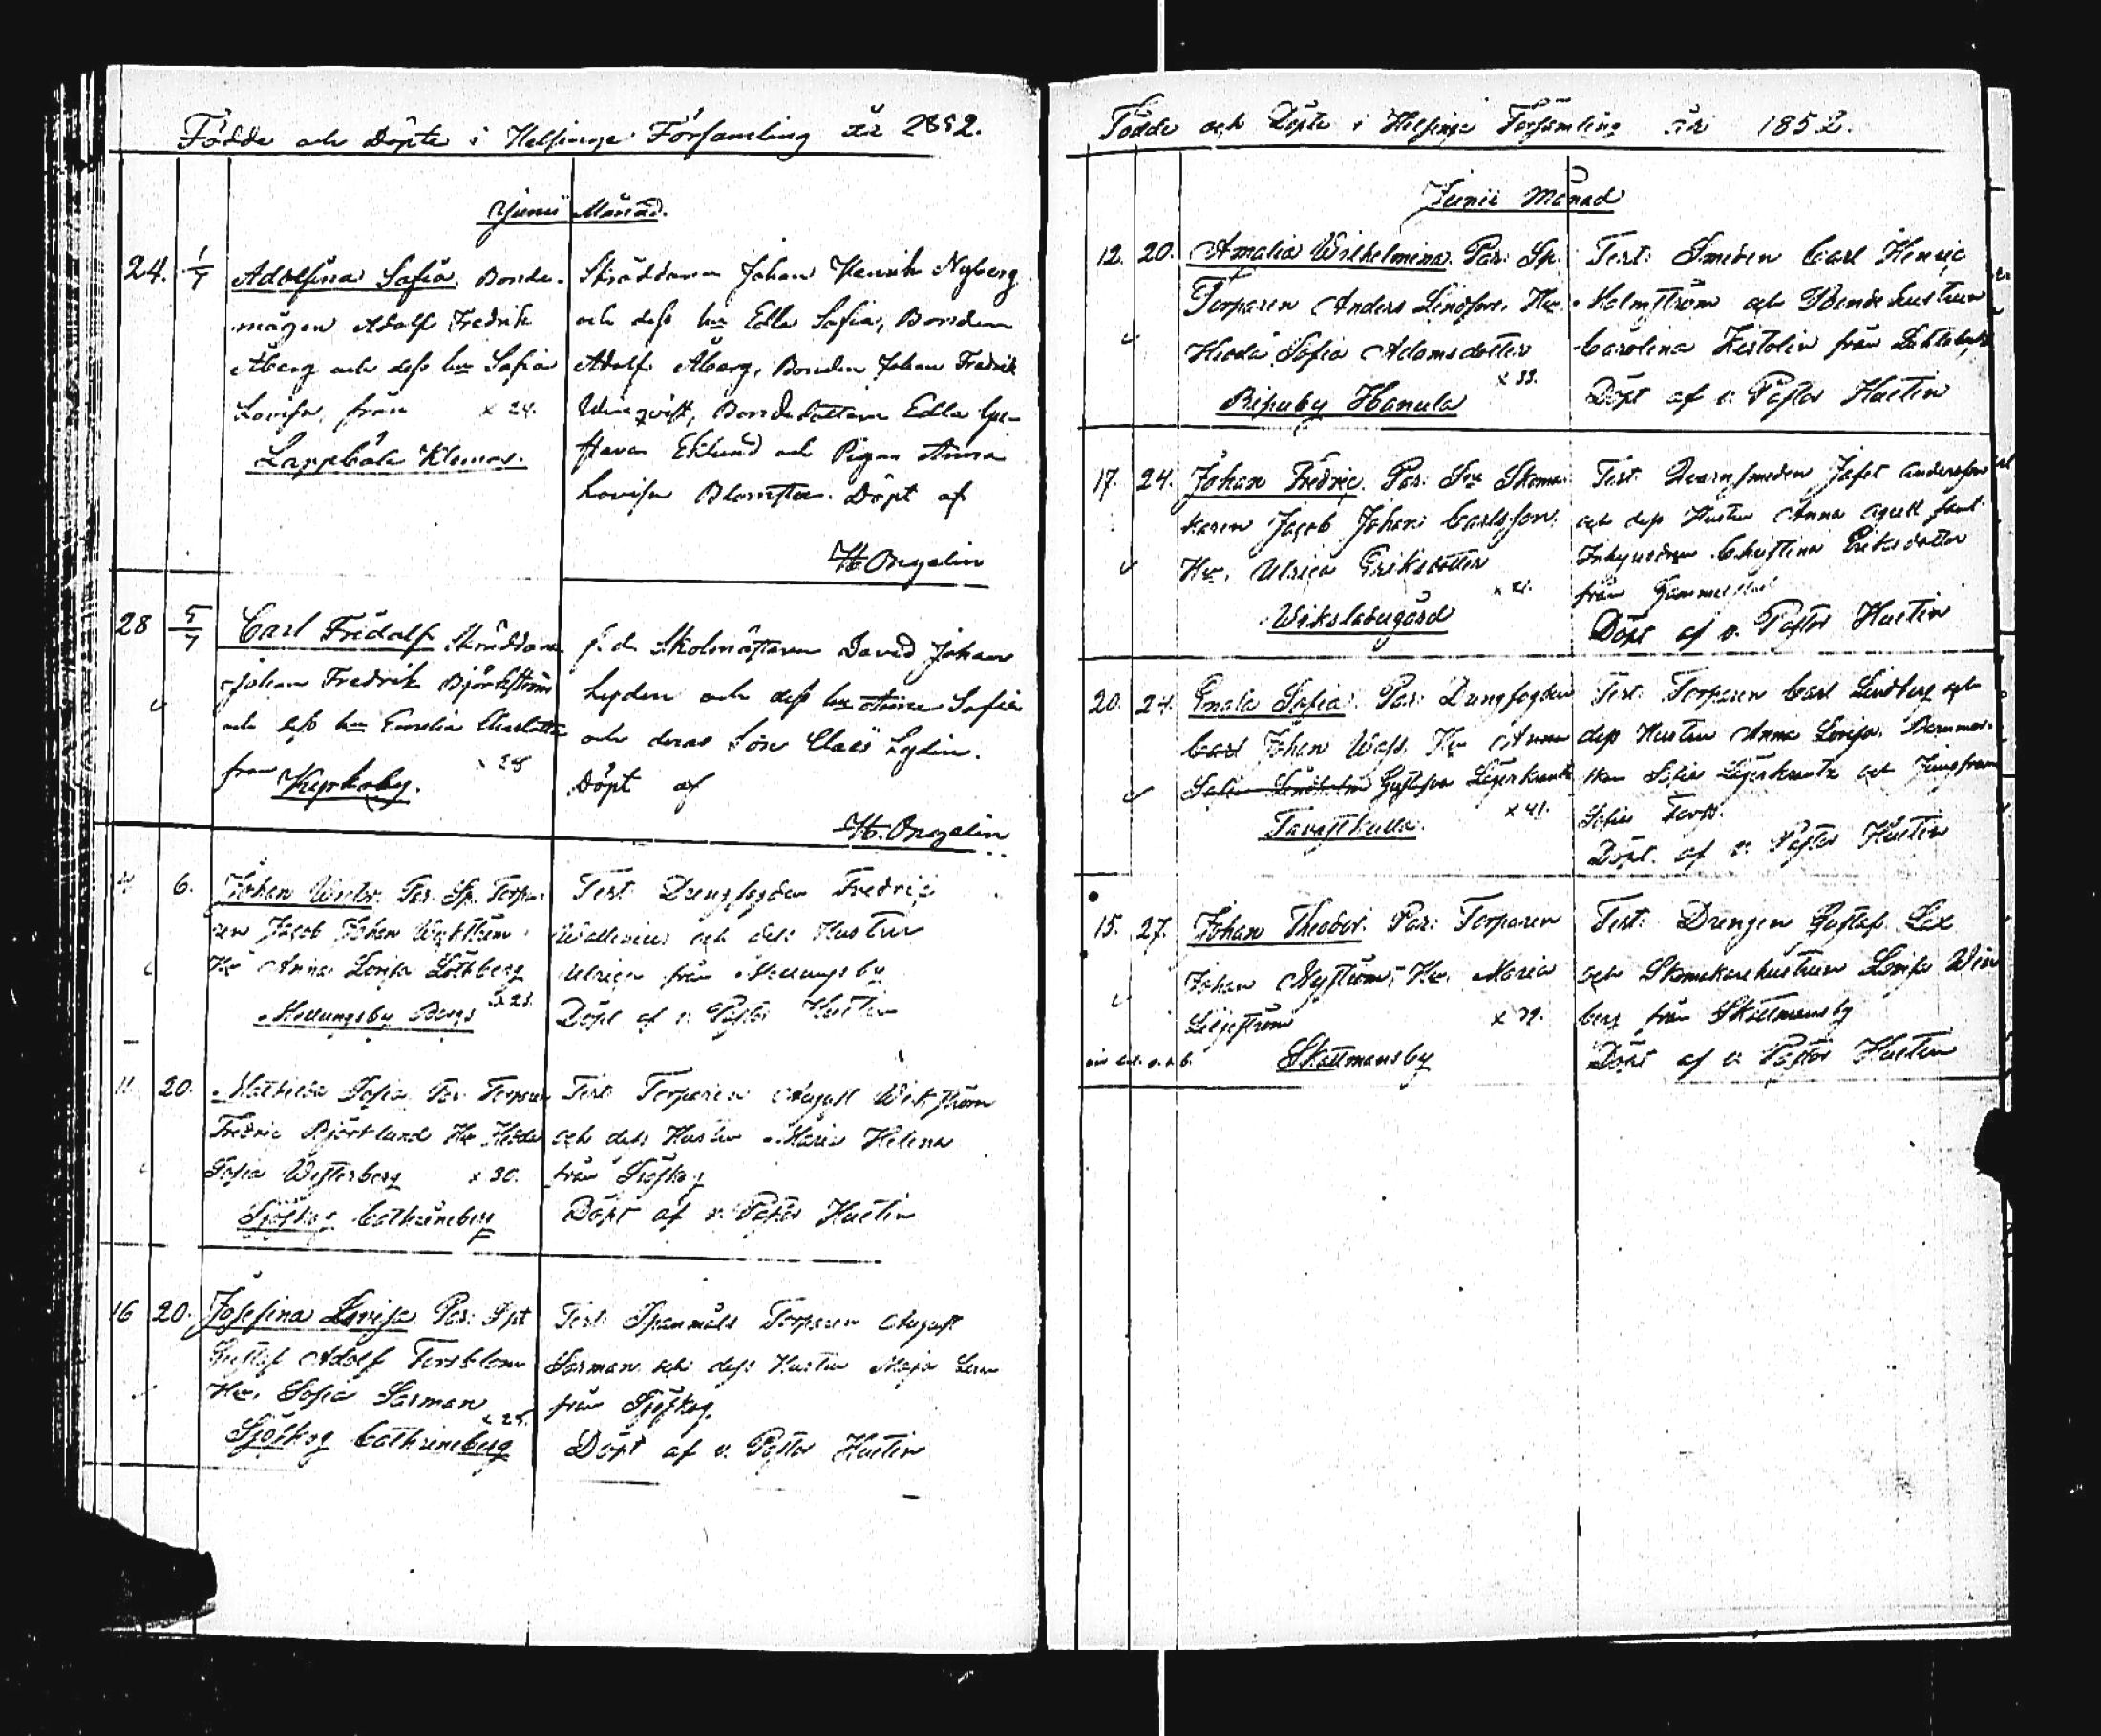 Födde och Döpte i Helsinge Församling år 1852.
Junii Månad.
24. 1/7 Adolfina Sofia. Bonde-
mågen Adolf Fredrik
Åberg och dess hu Sofia
Lovisa, från x 24.
Lappböle Klemas.
Skräddaren Johan Henrik Nyberg
och dess hu Edla Sofia, Bonden
Adolf Åberg, Bonden Johan Fredrik
Winqvist, Bondedottern Edla Gu-
stava Eklund och Pigan Anna
Lovisa Blomster. Döpt af
H. Ongelin
28 5/7 Carl Fridolf. Skräddaren
Johan Fredrik Björkström
och dess hu Emelia Charlotta
från x 28
Kyrkoby.
f.d. Skolmästaren David Johan
Lydin och dess hu Anna Sofia
och deras Son Claës Lydin.
Döpt af
H. Ongelin
4 6. Johan Victor. Par. Sp. Torpa-
ren Jacob Johan Wickström
Hu Anna Lovisa Löthberg
x 23.
Mellungsby Bergs
Test: Drengfogden Fredric
Wallenius och dess Hustru
Ulrica från Mellungsby
Döpt af v. Pastor Hustin
11. 20. Mathilda Sofia. Par. Torparen
Fredric Björklund Hu Heda
Sofia Westerberg x 30.
Sjöskog Cathrineberg
Test: Torparen August Wickström
och dess Hustru Maria Helena
från Sjöskog
Döpt af v. Pastor Hustin
16 20. Josefina Lovisa. Par: Spt
Gustaf Adolf Forsblom
Hu. Sofia Sarman
x 25.
Sjöskog Cathrineberg
Test: Spanmåls Torparen August
Sarman och dess Hustru Maja Lena
från Sjöskog.
Döpt af v. Pastor Hustin
Födde och Döpte i Helsinge Församling år 1852.
Junii Månad
12. 20. Amalia Wilhelmina. Par: Sp.
Torparen Anders Lindfors, Hu.
Heda Sofia Adamsdotter
x 33.
Biskuby Hanula
Test: Smeden Carl Henric
Holmström och Bondehustrun
Carolina
från
Döpt af v. Pastor Hustin
17. 24. Johan Fredric. Par: Sn Skoma-
karen Jacob Johan Carlsson.
Hu. Ulrica Eriksdotter
x 21.
Wikslatugård
Test: Qvarnsmeden Jafet Andersson
och dess Hustru Anna Agull samt
Inhysesdr. Christina Eriksdotter
från Gammelstad
Döpt af v. Pastor Hustin
20. 24. Emala Sofia. Par: Drengfogden
Carl Johan Wass, Hu Anna
Sofia Lindholm Gustafva Lägerkrantz
x 41.
Tavastkulla.
Test: Torparen Carl Lindberg och
dess Hustru Anna Lovisa. Barnmor-
skan Sofia Lägerkrantz och Jungfrun
Sofia Forss.
Döpt af v. Pastor Hustin
15. 27. Johan Theodor. Par: Torparen
Johan Nyström, Hu. Maria
Liljeström x 39.
Skattmansby
Test: Drengen Gustaf Lax
och Skomakarehustrun Lovisa Win-
berg från Skattmansby
Döpt af v. Pastor Hustin